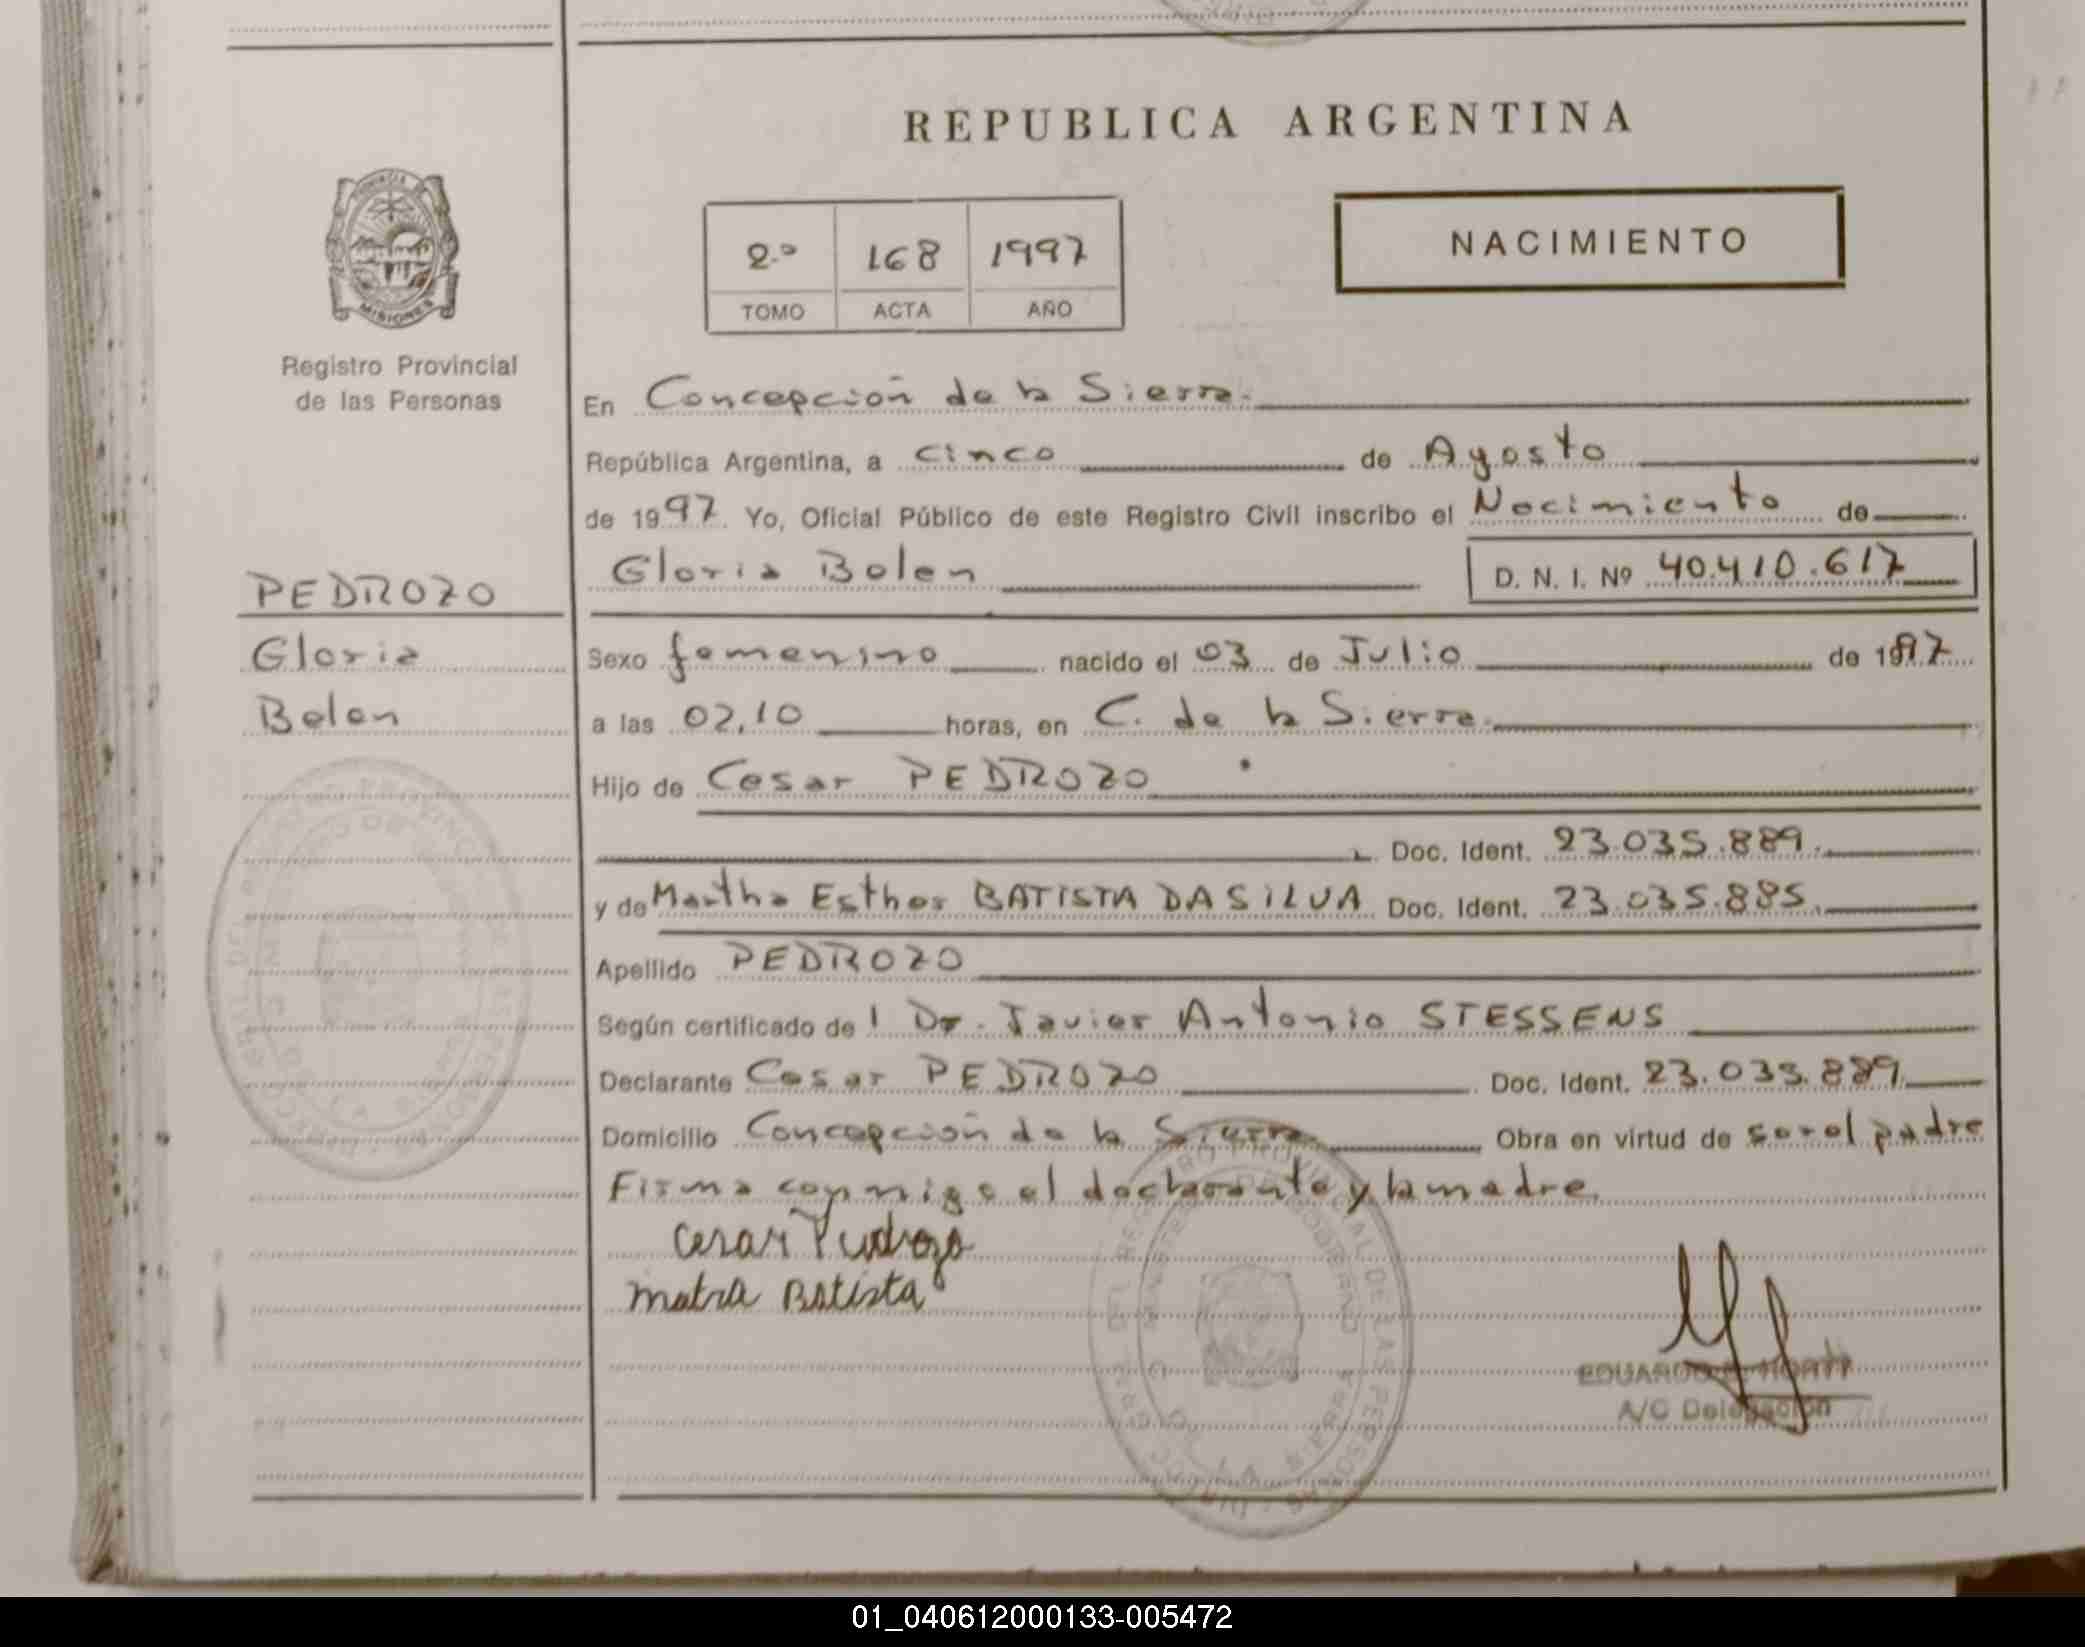 REPUBLICA ARGENTINA
PROVINCIA DE
MISIONES
Registro Provincial
de las Personas
2º 168 1997
TOMO ACTA AÑO
NACIMIENTO
En Concepción de la Sierra.
República Argentina, a cinco de Agosto
de 1997. Yo, Oficial Público de este Registro Civil inscribo el Nacimiento de
Gloria Belen D. N. I. Nº 40.410.617
PEDROZO
Gloria
Belen
Sexo femenino nacido el 03 de Julio de 1997
a las 02,10 horas, en C. de la Sierra.
Hijo de Cesar PEDROZO
Doc. Ident. 23.035.889.
y de Martha Esther BATISTA DASILVA Doc. Ident. 23.035.885.
Apellido PEDROZO
Según certificado de l Dr. Javier Antonio STESSENS
Declarante Cesar PEDROZO Doc. Ident. 23.035.889
Domicilio Concepción de la Sierra Obra en virtud de ser el padre
Firma conmigo el declarante y la madre.
Cesar Pedrozo
matra Batista
EDUARDO
A/C Delegación
01_040612000133-005472